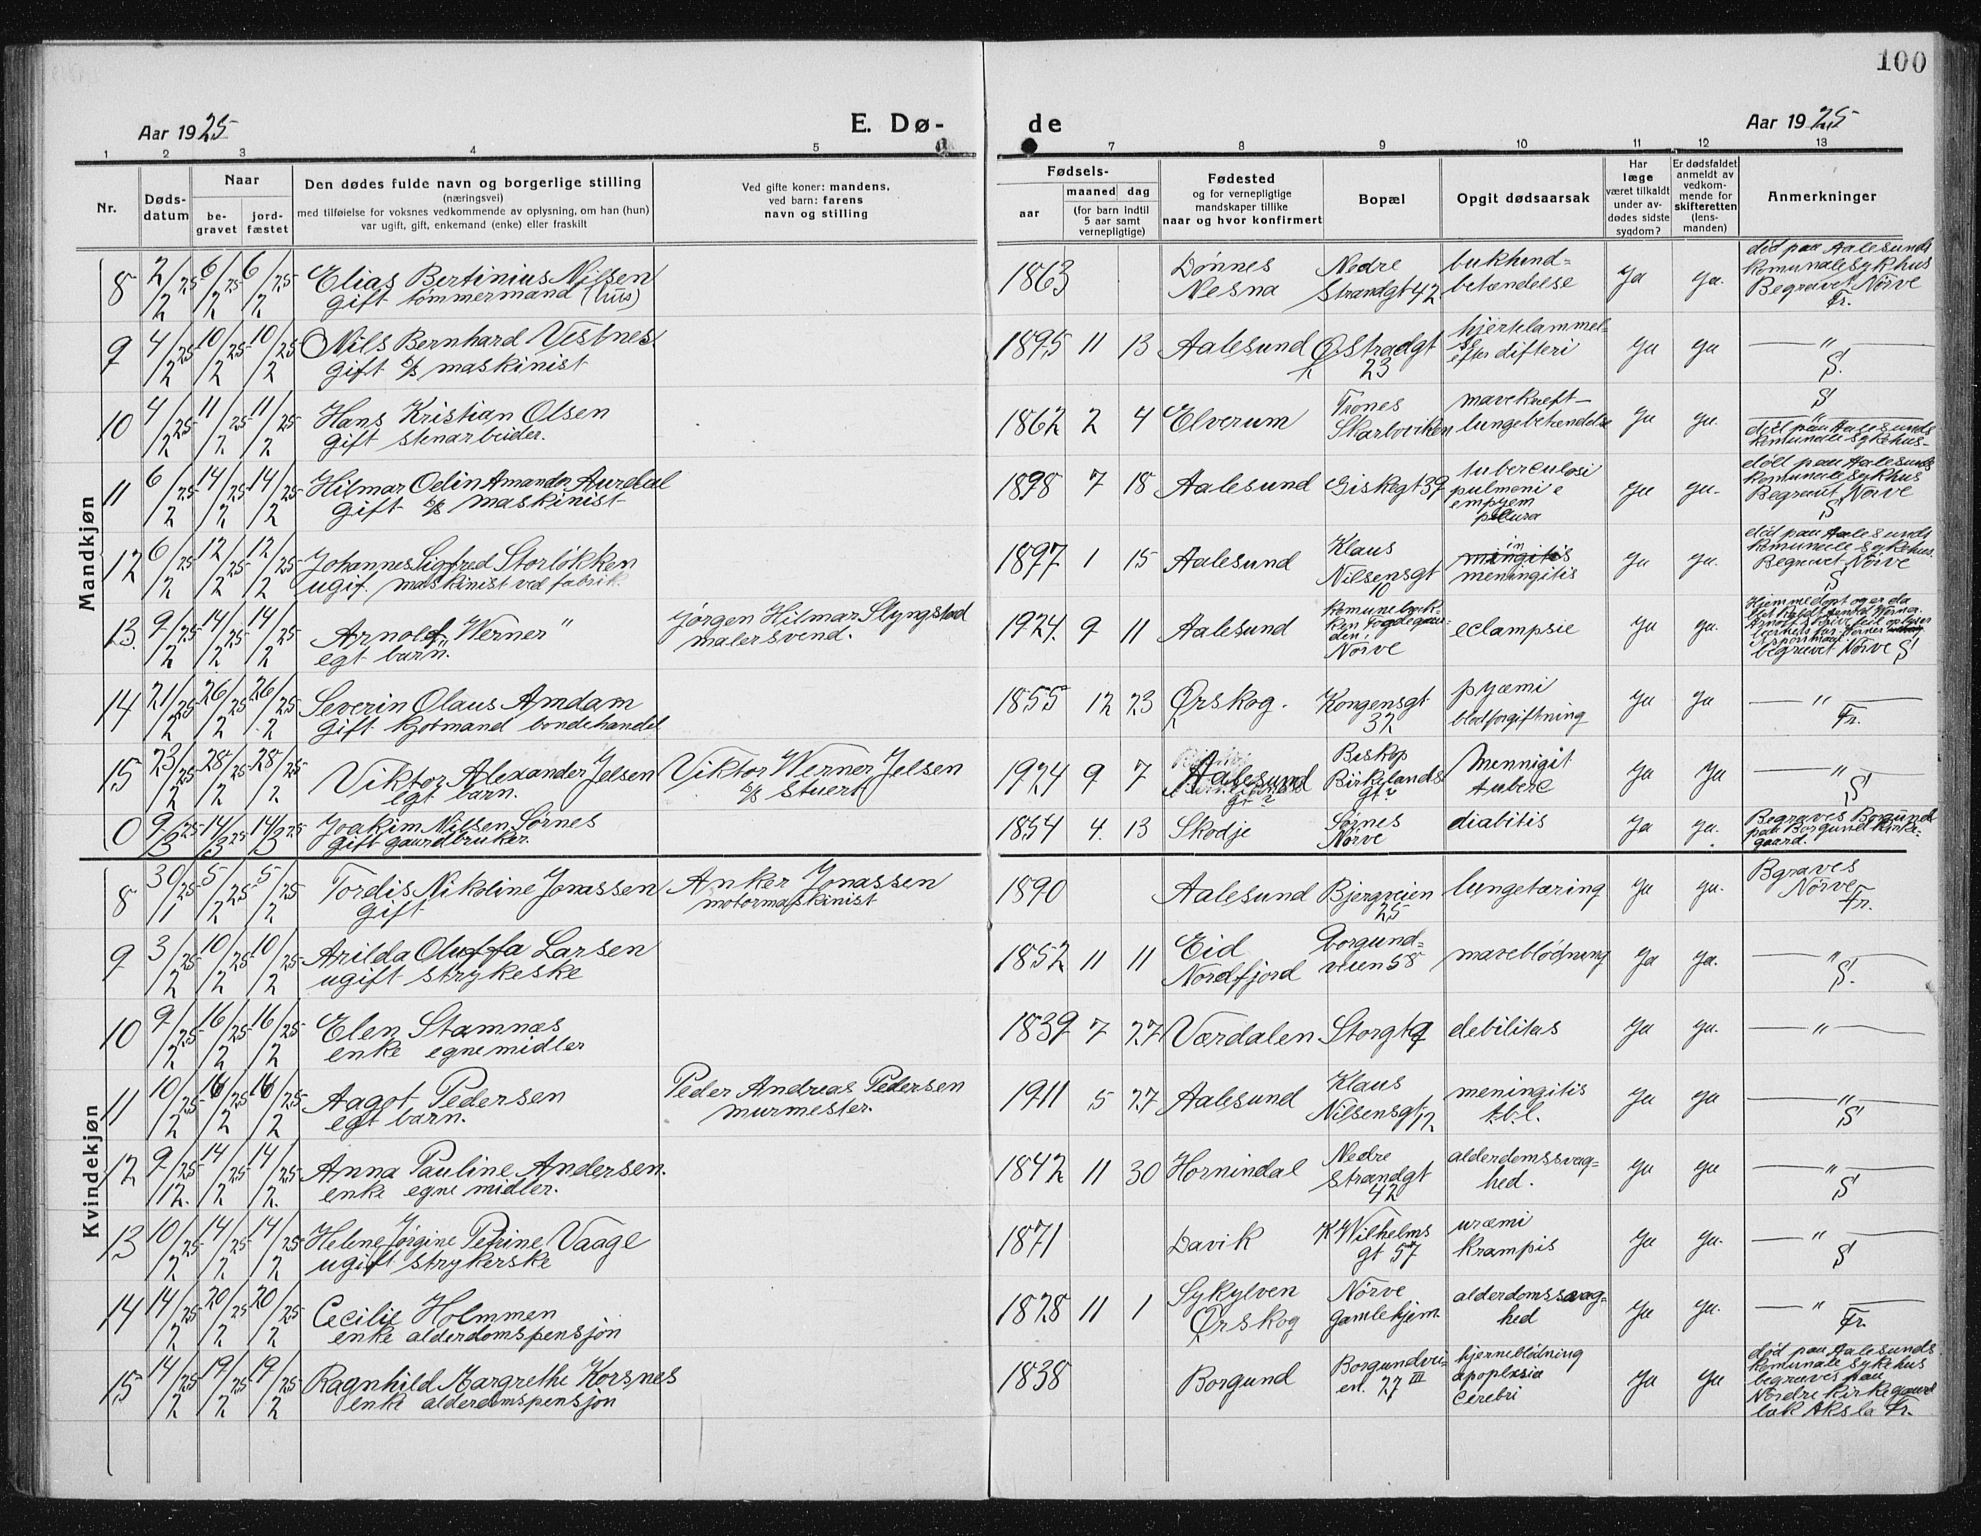 100
Aar 1925 E. Dø- de Aar 1925
1 2 3 4 5 7 8 9 10 11 12 13
Nr.
Døds-
datum
Naar
be-
gravet
jord-
fæstet
Den dødes fulde navn og borgerlige stilling
(næringsvei)
med tilføielse for voksnes vedkommende av oplysning, om han (hun)
var ugift, gift, enkemand (enke) eller fraskilt
Ved gifte koner: mandens,
ved barn: farens
navn og stilling
Fødsels-
aar
maaned dag
(for barn indtil
5 aar samt
vernepligtige)
Fødested
og for vernepligtige
mandskaper tillike
naar og hvor konfirmert
Bopæl
Opgit dødsaarsak
Har
læge
været tilkaldt
under av-
dødes sidste
sygdom?
Er dødsfaldet
anmeldt av
vedkom-
mende for
skifteretten
(lens-
manden)
Anmerkninger
Mandkjøn
8 2/2 25 6/2 25 6/2 25 Elias Bertinius Nilsen
gift tømmermand (hus)
1863 Dønnes
Nesna
Nedre
Strandgt 42
bukhind=
betændelse
ja ja.
død paa Aalesunds
komunale sykhus
Begravet Nörve
Fr.
9 4/2 25 10/2 25 10/2 25 Nils Bernhard Vestnes
gift maskinist
1895 11 13 Aalesund Ø. Stradgt
23
hjertelammel-
se
efter difteri
ja ja
— " —
S.
10 4/2 25 11/2 25 11/2 25 Hans Kristian Olsen
gift stenarbeider.
1862 2 4 Elverum
Trones
Skarboviken
mavekreft—
lungebetændelse
ja ja.
S
— " —
død paa Aalesunds
komunale sykehus-
11 6/2 25 14/2 25 14/2 25 Hilmar Odin Amandor Aurdal
gift maskinist
1898 7 18 Aalesund Giskegt 37
tuberculosi
pulmoni e
empyem
pleura
ja ja.
død paa Aalesunds
komunale sykhus
Begravet Nörve
S
12 6/2 25 12/2 25 12/2 25 Johannes Sigfred Storløkken
ugif. maskinist ved fabrik
1897 1 15 Aalesund
Klaus
Nilsensgt
10
meningitis
ja ja.
død paa Aalesunds
komunale sykehus
Begravet Nörve
S
13. 9/2 25 14/2 25 14/2 25 Arnold Werner "
egt barn.
Jørgen Hilmar Slyngstad
malersvend.
1924. 9 11 Aalesund
Nörve
eclampsie
ja ja.
Hjemmedøpt og er da
begravet Nörve S
14 21/2 25 26/2 25 26/2 25 Severin Olaus Amdam
gift kjøpmand londehandel
1855 12 23 Ørskog.
Kongensgt
32
pyæmi
blodforgiftning
ja ja
— " —
Fr.
15 23/2 25 28/2 25 28/2 25 Viktor Alexander Jelsen
egt barn.
Viktor Werner Jelsen
Stuert
1924 9 7 Aalesund
Biskop
Birkelands
gt.
Mennigit
tuberc
ja ja
— " —
S
0 9/3 25 14/3 25 14/3 25 Joakim Nilsen Sørnes
gift gaardbruker.
1854 4. 13 Skodje
Sørnes
Nörve
diabitis
ja ja.
Begraves Borgund
paa Borgund kirke-
gaard.
Kvindekjøn
8 30/1 25 5/2 25 5/2 25 Tordis Nikoline Jonassen
gift
Anker Jonassen
motormaskinist
1890 Aalesund
Bjergveien
25
lungetæring
ja ja.
Bgraves
Nörve
Fr.
9 3/2 25 10/2 25 10/2 25 Arilda Oluffa Larsen
ugift strykeske
1852 11 11 Eid
Nordfjord
Borgund-
veien 58
maveblødning
ja ja.
— " —
S.
10 9/2 25 16/2 25 16/2 25 Elen Stamnæs
enke egne midler
1839 7 27 Værdalen Storgt 9 debilitas
ja ja.
— " —
11 10/2 25 16/2 25 16/2 25 Aagot Pedersen
egt barn.
Peder Andreas Pedersen
murmester.
1911 5 27 Aalesund
Klaus
Nilsensgt 12
meningitis
t.b.l.
ja ja
— " —
S
12 9/12. 25 14/2 25 14/2. 25 Anna Pauline Andersen.
enke egne midler.
1842 11 30 Hornindal
Nedre
Strandgt
42
alderdomssvag=
hed.
ja ja
— " —
S
13 10/2 25 14/2 25 14/2 25 Helene Jørgine Petrine Vaage
ugift strykerske
1871 Davik
K Wilhelms
gt 57
uræmi
krampis
ja ja.
— " —
S
14 14/2 25 20/2 25 20/2 25 Cecilie Holmmen
enke alderdomspensjon
1828 11 1 Sykylven
Ørskog
Nörve
gamlehjem.
alderdomssvag=
hed
ja ja.
— " —
Fr.
15 14/2 25 19/2 25 19/2 25 Ragnhild Margrethe Korsnes
enke alderdomspensjon
1838 Borgund
Borgundvei-
en. 27 III
hjerneblødning
apoplexia
cerebri
ja ja
død paa Aalesunds
komunale sykehus
begraves paa
Nordre kirkegaard
bak Aksla Fr.